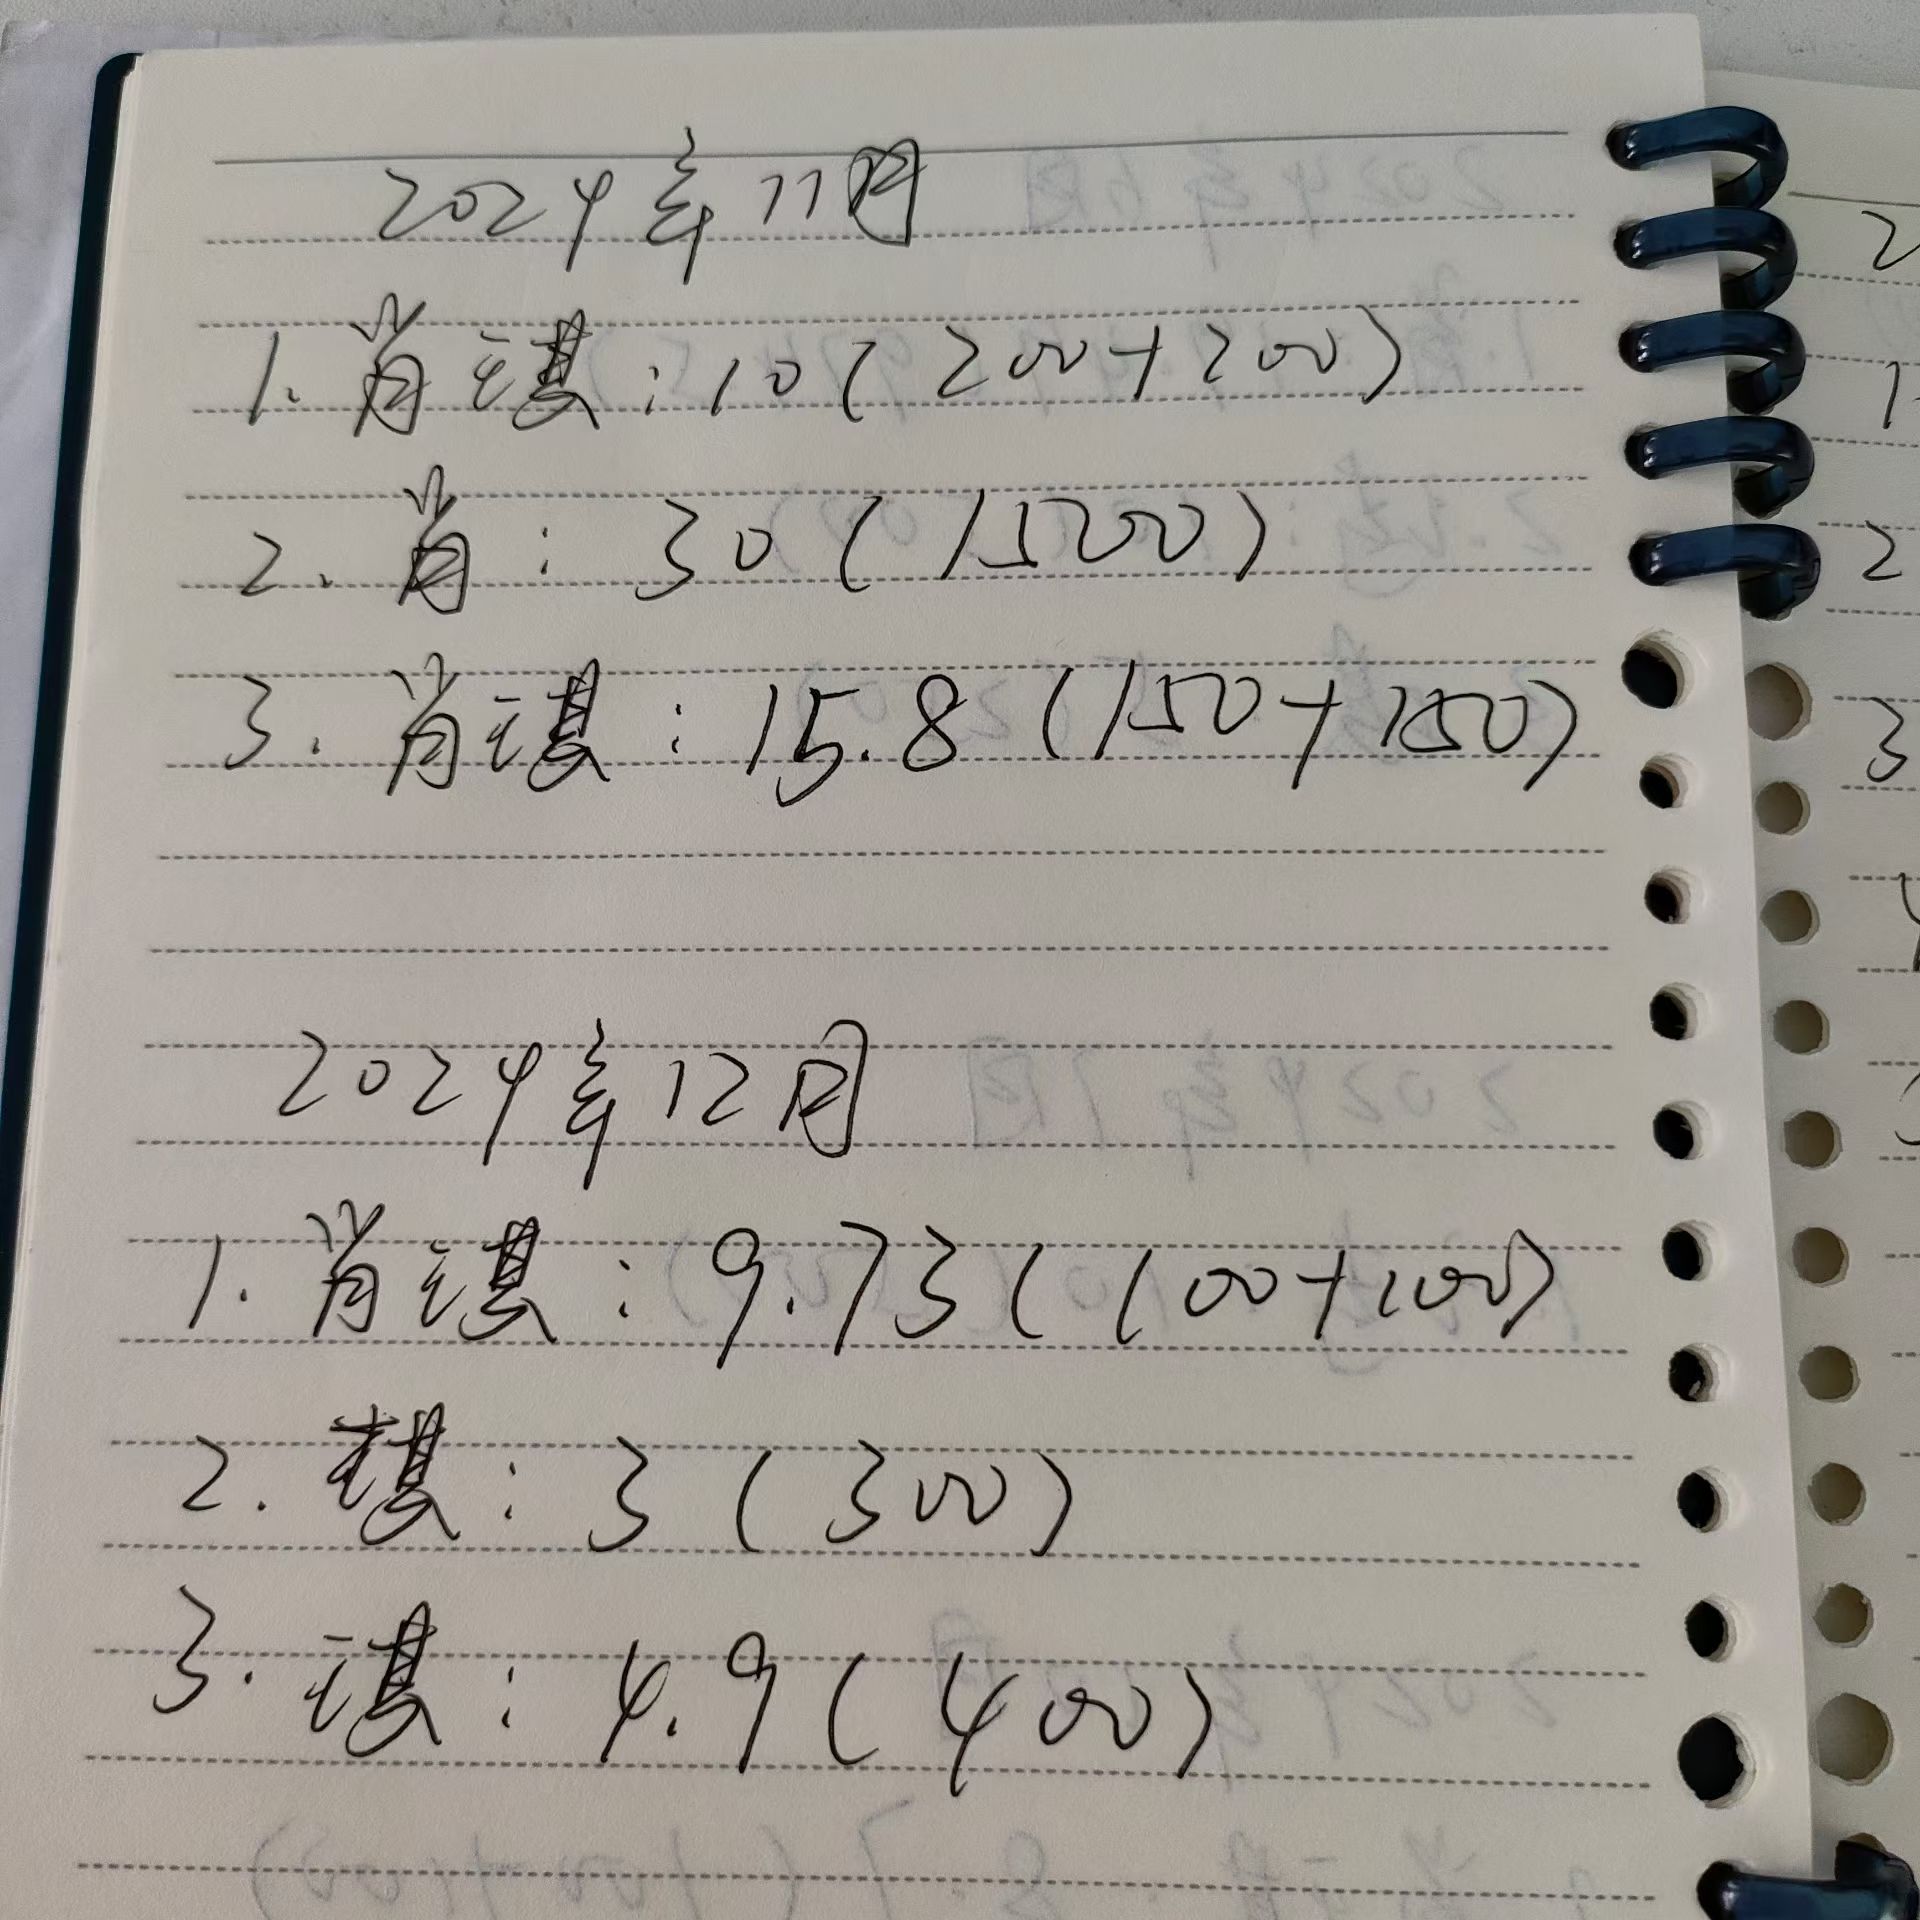 2024年11月
1. 肖琪：10（200+200）
2. 肖：30（1500）
3. 肖琪：15.8（150+150）
2024年12月
1. 肖琪：9.73（100+100）
2. 琪：3（300）
3. 琪：4.9（400）
2
1.
2
3